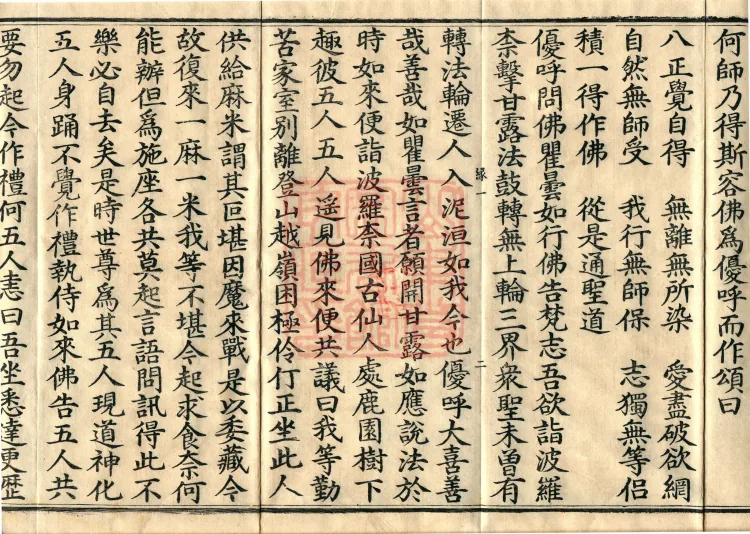 何師乃得斯容佛為優呼而作頌曰
八正覺自得　無離無所染　愛盡破欲網
自然無師受　我行無師保　志獨無等侶
積一得作佛　從是通聖道
優呼問佛瞿曇如行佛告梵志吾欲詣波羅
柰擊甘露法鼓轉無上輪三界衆聖未曾有
轉法輪遷人入泥洹如我今也優呼大喜善
哉善哉如瞿曇言者願開甘露如應說法於
時如來便詣波羅柰國古仙人處鹿園樹下
趣彼五人五人遥見佛來便共議曰我等勤
苦家室別離登山越嶺困極伶仃正坐此人
供給麻米謂其叵堪因魔來戰是以委藏今
故復來一麻一米我等不堪今起求食柰何
能辦但為施座各共莫起言語問訊得此不
樂必自去矣是時世尊為其五人現道神化
五人身踊不覺作禮執侍如來佛告五人共
要勿起今作禮何五人恚曰吾坐悉達更歴
縁一
二